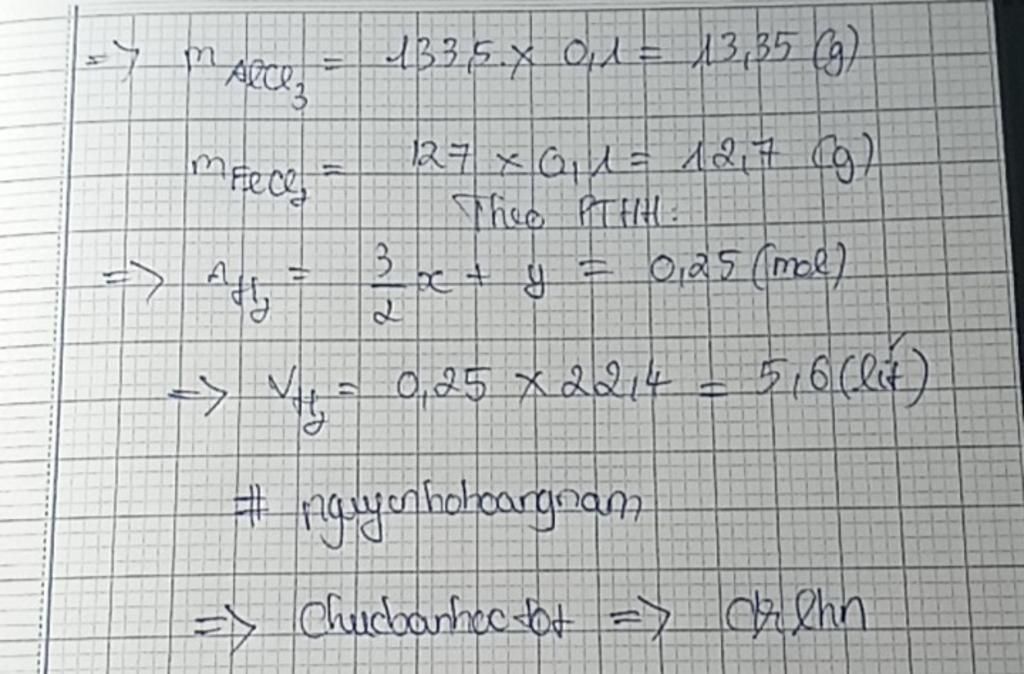 => m AlCl3 = 133,5 x 0,1 = 13,35 (g)
m FeCl2 = 127 x 0,1 = 12,7 (g)
Theo PTHH:
=> nH2 = 3/2 x + y = 0,25 (mol)
=> VH2 = 0,25 x 22,4 = 5,6 (lít)
# nguyenhohoangnam
=> Chucbanhoctot =>